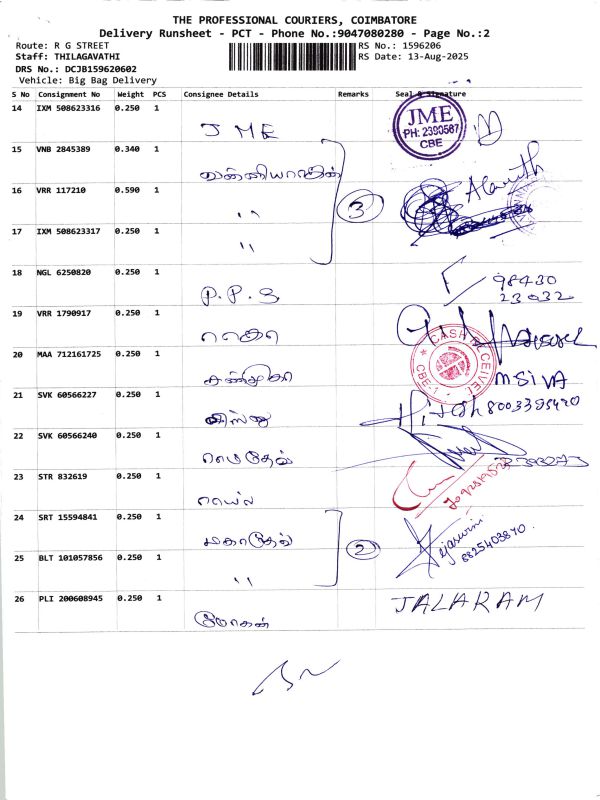 THE PROFESSIONAL COURIERS, COIMBATORE
Delivery Runsheet - PCT - Phone No.:9047080280 - Page No.:2
Route: R G STREET
RS No.: 1596206
Staff: THILAGAVATHI
RS Date: 13-Aug-2025
DRS No.: DCJB159620602
Vehicle: Big Bag Delivery
S No Consignment No Weight PCS Consignee Details Remarks Seal & Signature
14 IXM 508623316 0.250 1
JME
JME
PH: 2380567
CBE
15 VNB 2845389 0.340 1
16 VRR 117210 0.590 1
"
3
17 IXM 508623317 0.250 1
"
18 NGL 6250820 0.250 1
P.P.S
98430
23032
19 VRR 1790917 0.250 1
20 MAA 712161725 0.250 1
சண்முகா
CBE-1
M SIVA
21 SVK 60566227 0.250 1
கிஸ்னு
Hitesh 8003395490
22 SVK 60566240 0.250 1
23 STR 832619 0.250 1
24 SRT 15594841 0.250 1
மகாதேவ்
2
Tejaswini
8825403870
25 BLT 101057856 0.250 1
"
26 PLI 200608945 0.250 1
மோகன்
JALARAM